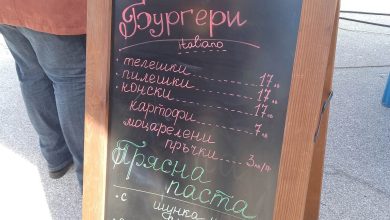 Бургери
• телешки ........ 17 лв
• пилешки ........ 17 лв
• конски ........ 17 лв
картофи ........ 7 лв
моцарелени
пръчки ... 3
Прясна
паста
• с шунка